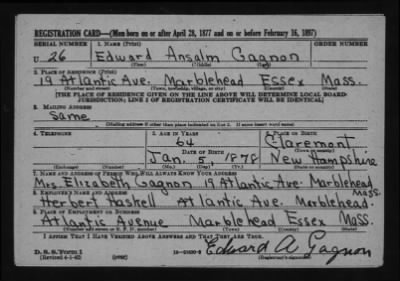 REGISTRATION CARD—(Men born on or after April 28, 1877 and on or before February 16, 1897)
SERIAL NUMBER 1. NAME (Print) ORDER NUMBER
U 26 Edward Ansalm Gagnon
(First) (Middle) (Last)
2. PLACE OF RESIDENCE (Print)
19 Atlantic Ave. Marblehead Essex Mass.
(Number and street) (Town, township, village, or city) (County) (State)
[THE PLACE OF RESIDENCE GIVEN ON THE LINE ABOVE WILL DETERMINE LOCAL BOARD
JURISDICTION; LINE 2 OF REGISTRATION CERTIFICATE WILL BE IDENTICAL]
3. MAILING ADDRESS
Same
[Mailing address if other than place indicated on line 2. If same insert word same]
4. TELEPHONE 5. AGE IN YEARS 6. PLACE OF BIRTH
64 Claremont
DATE OF BIRTH (Town or county)
Jan. 5, 1878 New Hampshire
(Exchange) (Number) (Mo.) (Day) (Yr.) (State or country)
7. NAME AND ADDRESS OF PERSON WHO WILL ALWAYS KNOW YOUR ADDRESS
Mrs. Elizabeth Gagnon 19 Atlantic Ave. Marblehead Mass.
8. EMPLOYER'S NAME AND ADDRESS
Herbert Haskell Atlantic Ave. Marblehead
9. PLACE OF EMPLOYMENT OR BUSINESS
Atlantic Avenue Marblehead Essex Mass.
(Number and street or R. F. D. number) (Town) (County) (State)
I AFFIRM THAT I HAVE VERIFIED ABOVE ANSWERS AND THAT THEY ARE TRUE.
D. S. S. Form 1 Edward A Gagnon
(Revised 4-1-42) (over) (Registrant's signature)